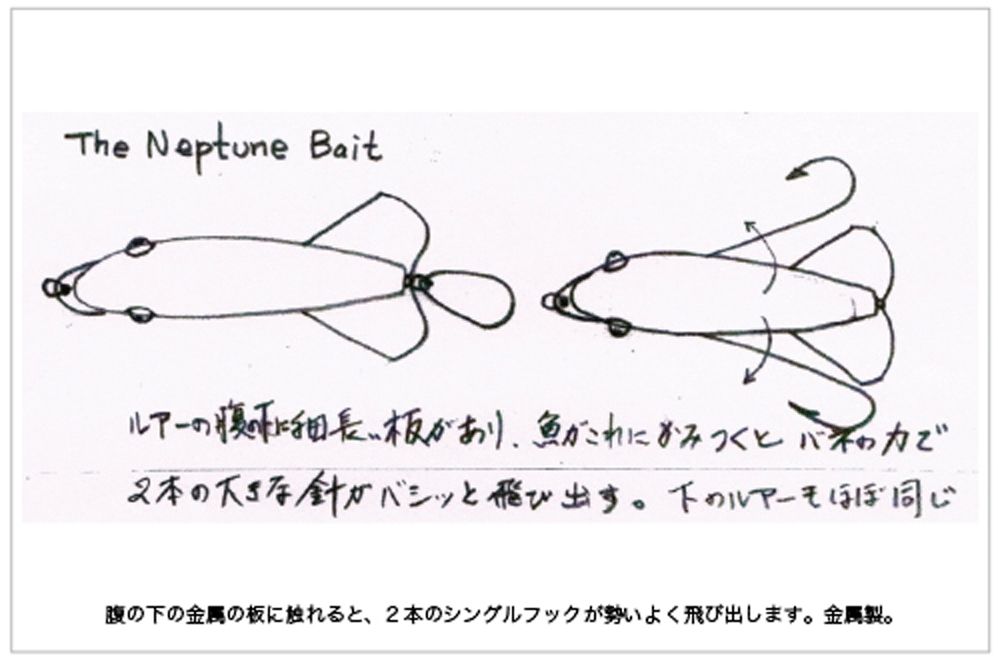 The Neptune Bait
ルアーの腹の下に細長い板があり、魚がこれにかみつくと バネの力で
2本の大きな針がバシッと飛び出す。下のルアーもほぼ同じ
腹の下の金属の板に触れると、２本のシングルフックが勢いよく飛び出します。金属製。